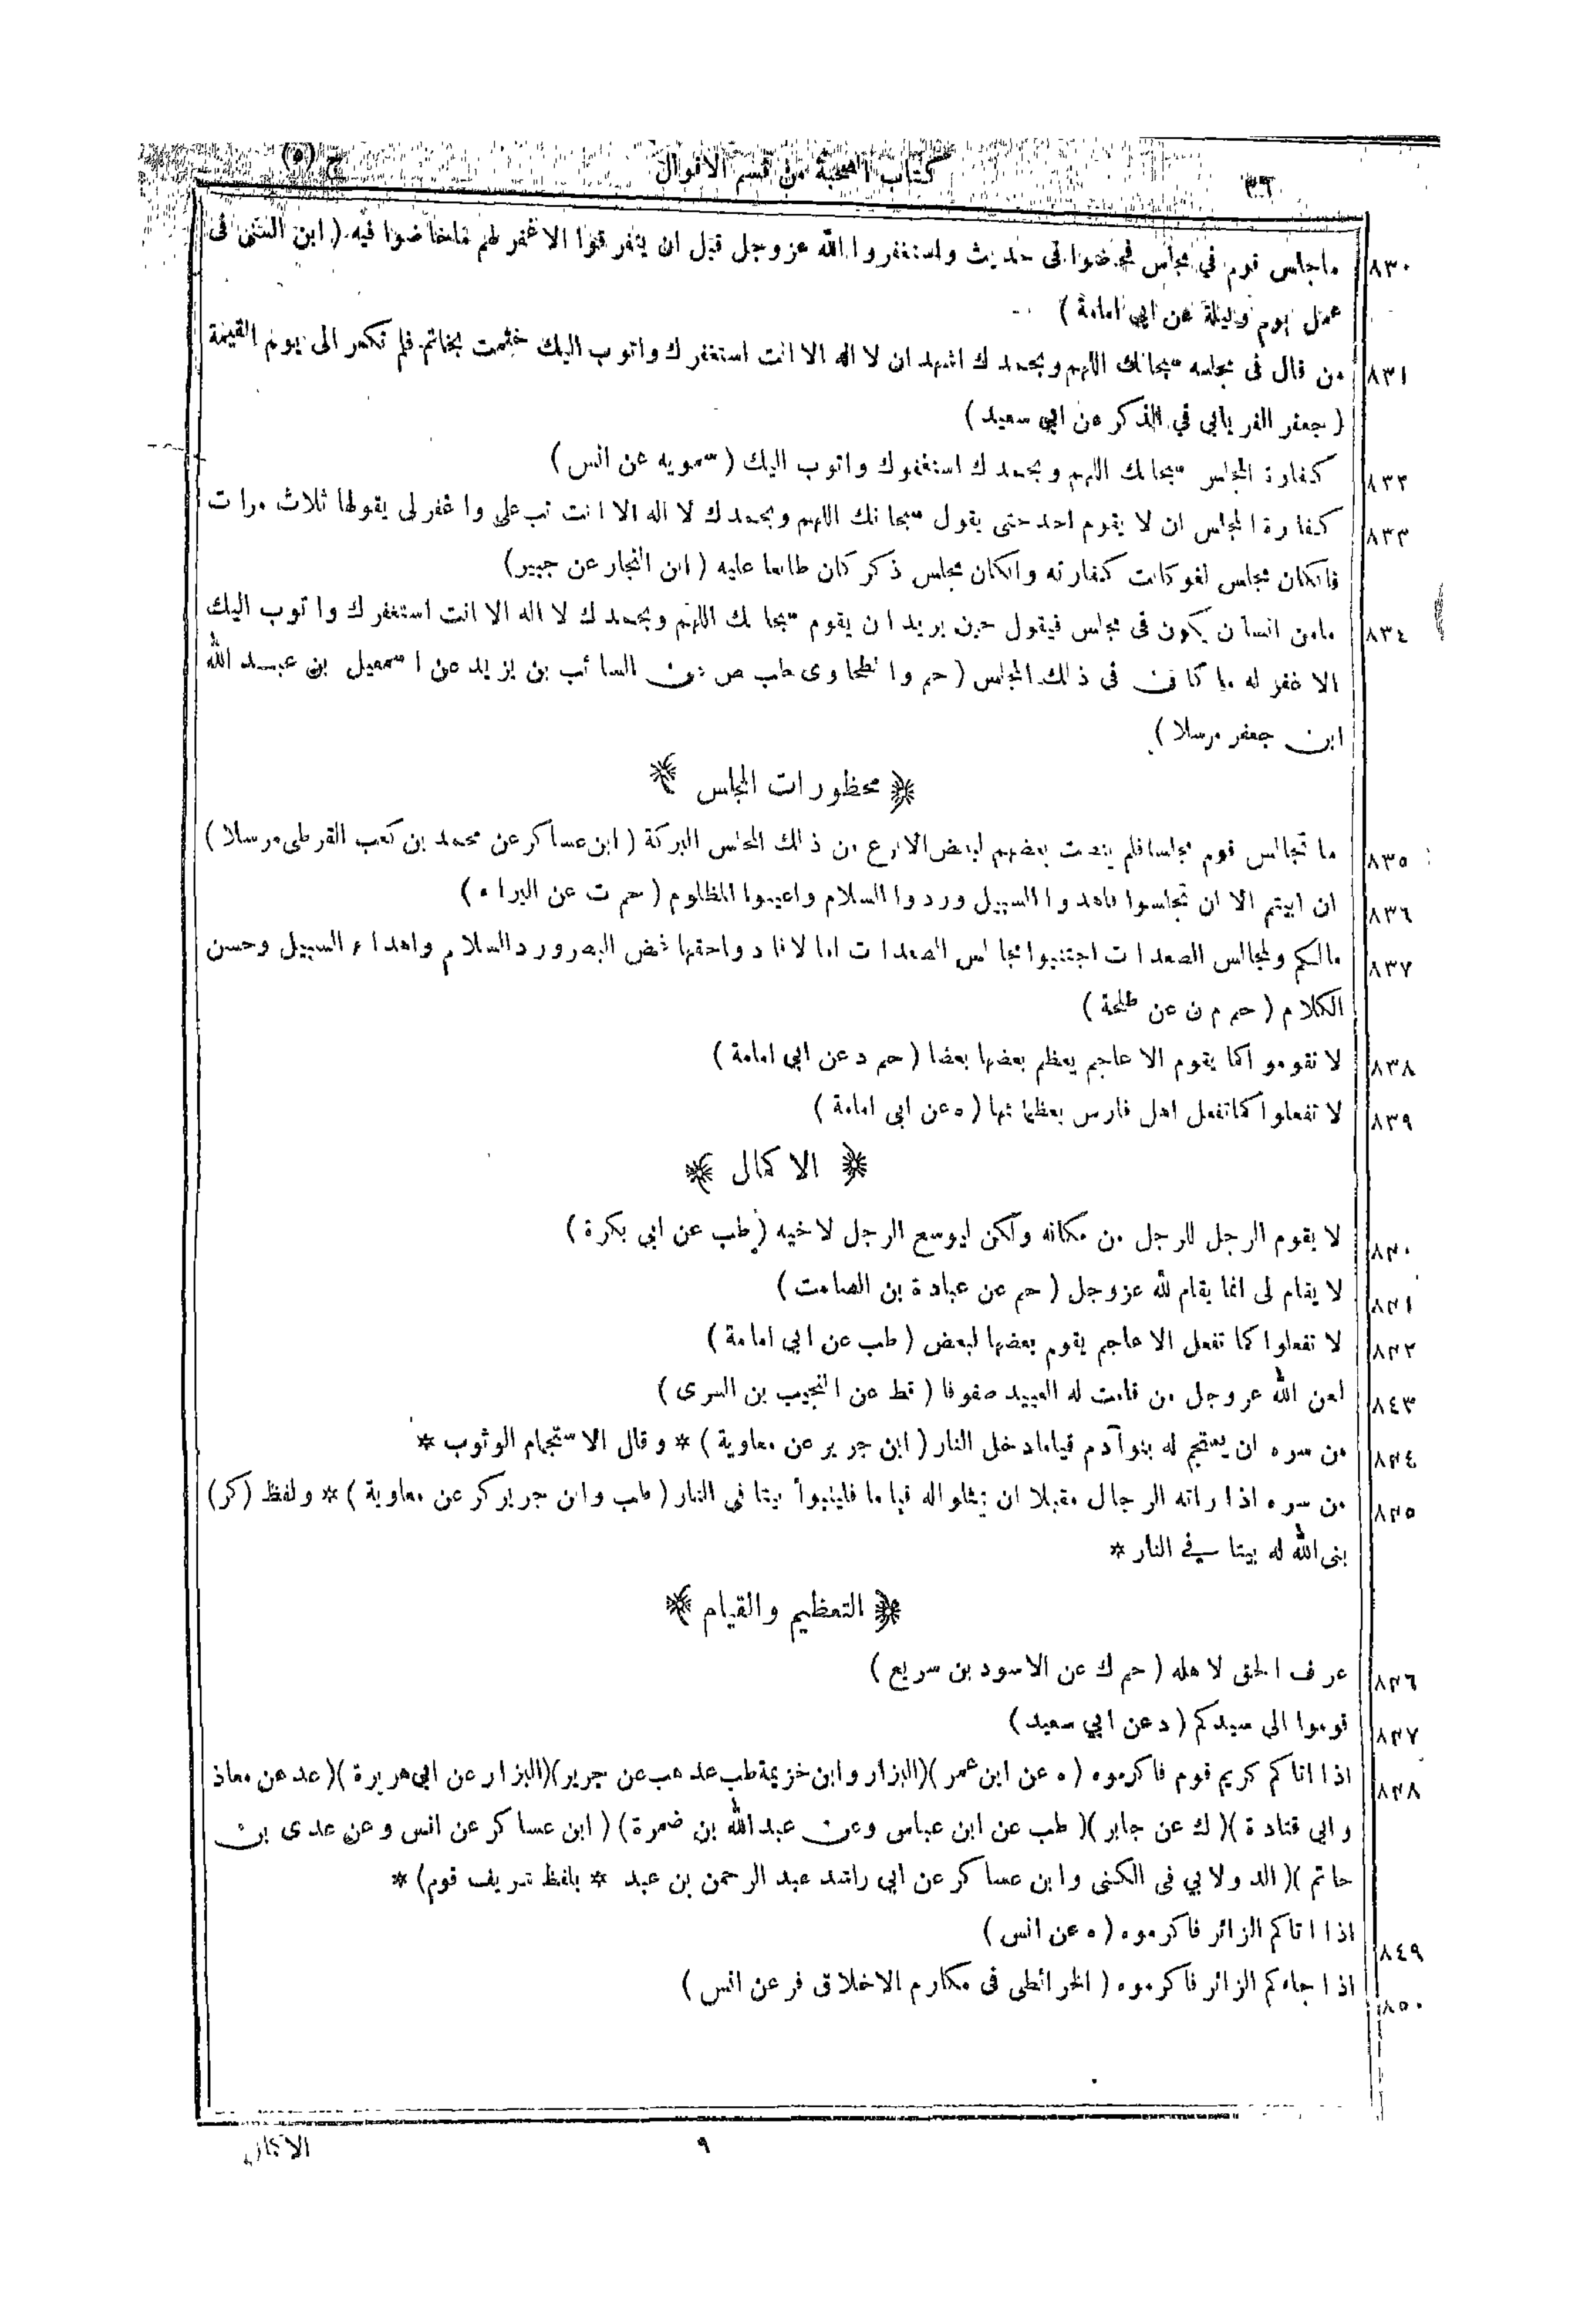 ٣٦ كتاب الصحبة من قسم الاقوال ج (٥)
٨٣٠ ماجلس قوم في مجلس فخاضوا فى حديث واستغفروا الله عزوجل قبل ان يتفرقوا الا غفر لهم ماخاضوا فيه (ابن السنى فى
عمل يوم وليلة عن ابي امامة)
٨٣١ من قال فى مجلسه سبحانك اللهم وبحمدك اشهد ان لا اله الا انت استغفرك واتوب اليك ختمت بخاتم فلم تكسر الى يوم القيمة
(جعفر الفريابي في الذكر عن ابي سعيد)
٨٣٢ كفارة المجلس سبحانك اللهم وبحمدك استغفرك واتوب اليك (سمويه عن انس)
٨٣٣ كفارة المجلس ان لا يقوم احد حتى يقول سبحانك اللهم وبحمدك لا اله الا انت تب علي واغفرلى يقولها ثلاث مرات
فانكان مجلس لغو كانت كفارته وانكان مجلس ذكر كان طابعا عليه (ابن النجار عن جبير)
٨٣٤ مامن انسان يكون فى مجلس فيقول حين يريد ان يقوم سبحانك اللهم وبحمدك لا اله الا انت استغفرك واتوب اليك
الا غفر له ما كان فى ذلك المجلس (حم والطحاوى طب ص عن السائب بن يزيد عن اسمعيل بن عبد الله
ابن جعفر مرسلا)
محظورات المجلس
٨٣٥ ما تجالس قوم مجلسا فلم ينصت بعضهم لبعض الا نزع من ذلك المجلس البركة (ابن عساكر عن محمد بن كعب القرظى مرسلا)
٨٣٦ ان ابيتم الا ان تجلسوا فاهدوا السبيل وردوا السلام واعينوا المظلوم (حم ت عن البراء)
٨٣٧ مالكم ولمجالس الصعدات اجتنبوا مجالس الصعدات اما لا فادوا حقها غض البصر ورد السلام واهداء السبيل وحسن
الكلام (حم م ن عن طلحة)
٨٣٨ لا تقوموا كما يقوم الاعاجم يعظم بعضها بعضا (حم د عن ابى امامة)
٨٣٩ لا تفعلوا كماتفعل اهل فارس بعظمائها (ه عن ابى امامة)
الاكمال
٨٤٠ لا يقوم الرجل للرجل من مكانه ولكن ليوسع الرجل لاخيه (طب عن ابى بكرة)
٨٤١ لا يقام لى انما يقام لله عزوجل (حم عن عبادة بن الصامت)
٨٤٢ لا تفعلوا كما تفعل الاعاجم يقوم بعضها لبعض (طب عن ابى امامة)
٨٤٣ لعن الله عزوجل من قامت له العبيد صفوفا (قط عن النجيب بن السرى)
٨٤٤ من سره ان يستجم له بنوآدم قيامادخل النار (ابن جرير عن معاوية) * وقال الاستجمام الوثوب *
٨٤٥ من سره اذا راته الرجال مقبلا ان يمثلواله قياما فليتبوأ بيتا في النار (طب وابن جرير كر عن معاوية) * ولفظ (كر)
بنى الله له بيتا في النار *
التعظيم والقيام
٨٤٦ عرف الحق لاهله (حم ك عن الاسود بن سريع)
٨٤٧ قوموا الى سيدكم (د عن ابي سعيد)
٨٤٨ اذا اتاكم كريم قوم فاكرموه (ه عن ابن عمر)(البزار وابن خزيمة طب عد هب عن جرير)(البزار عن ابى هريرة)(عد عن معاذ
وابي قتادة)(ك عن جابر)(طب عن ابن عباس وعن عبدالله بن ضمرة)(ابن عساكر عن انس وعن عدى بن
حاتم)(الدولابي فى الكنى وابن عساكر عن ابي راشد عبد الرحمن بن عبد * بلفظ شريف قوم) *
٨٤٩ اذا اتاكم الزائر فاكرموه (ه عن انس)
٨٥٠ اذا جاءكم الزائر فاكرموه (الخرائطى فى مكارم الاخلاق فر عن انس)
٩ الاكمال